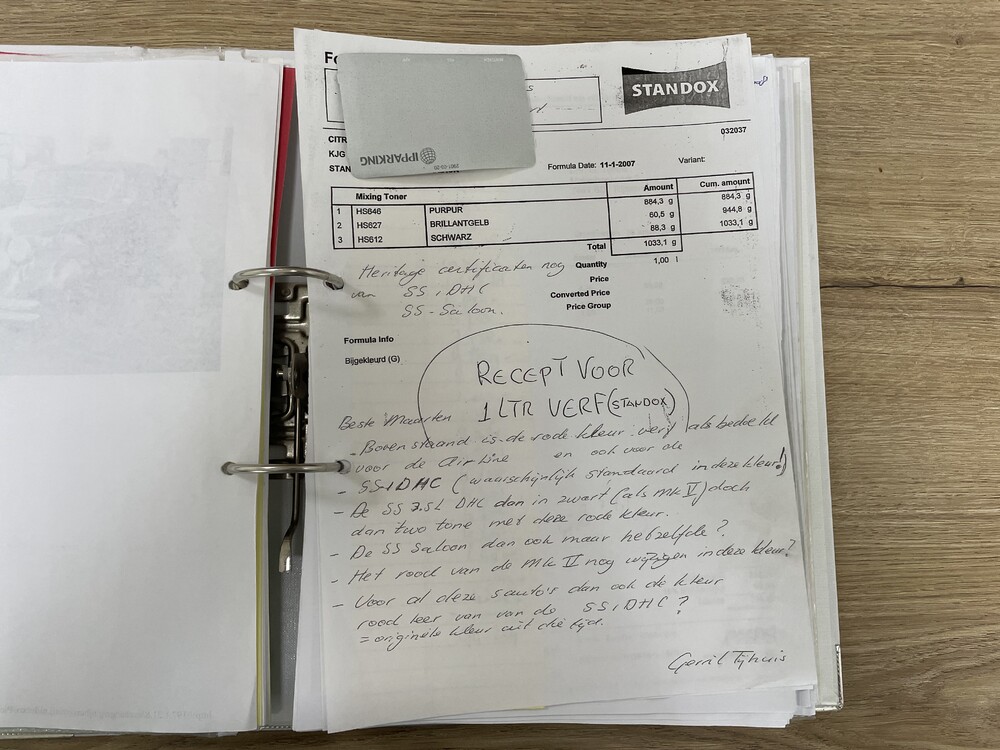 Fo
STANDOX
032037
CITR
KJG
STAN
IPPARKING
Formula Date: 11-1-2007 Variant:
Mixing Toner Amount Cum. amount
1 HS646 PURPUR 884,3 g 884,3 g
2 HS627 BRILLANTGELB 60,5 g 944,8 g
3 HS612 SCHWARZ 88,3 g 1033,1 g
Total 1033,1 g
Quantity 1,00 l
Price
Converted Price
Price Group
Heritage certificaten nog
van SS1 DHC
SS-Saloon.
Formula Info
Bijgekleurd (G)
RECEPT VOOR
1 LTR VERF (STANDOX)
Beste Maarten
- Bovenstaand is de rode kleur verf als bedoeld
voor de Airline en ook voor de
- SS1 DHC (waarschijnlijk standaard in deze kleur!)
- De SS 3.5L DHC dan in zwart (als MK V) doch
dan two tone met deze rode kleur.
- De SS Saloon dan ook maar hetzelfde?
- Het rood van de MK V nog wijzigen in deze kleur?
- Voor al deze 5 auto's dan ook de kleur
rood leer van van de SS1 DHC?
= originele kleur uit die tijd.
Gerrit Tijhuis